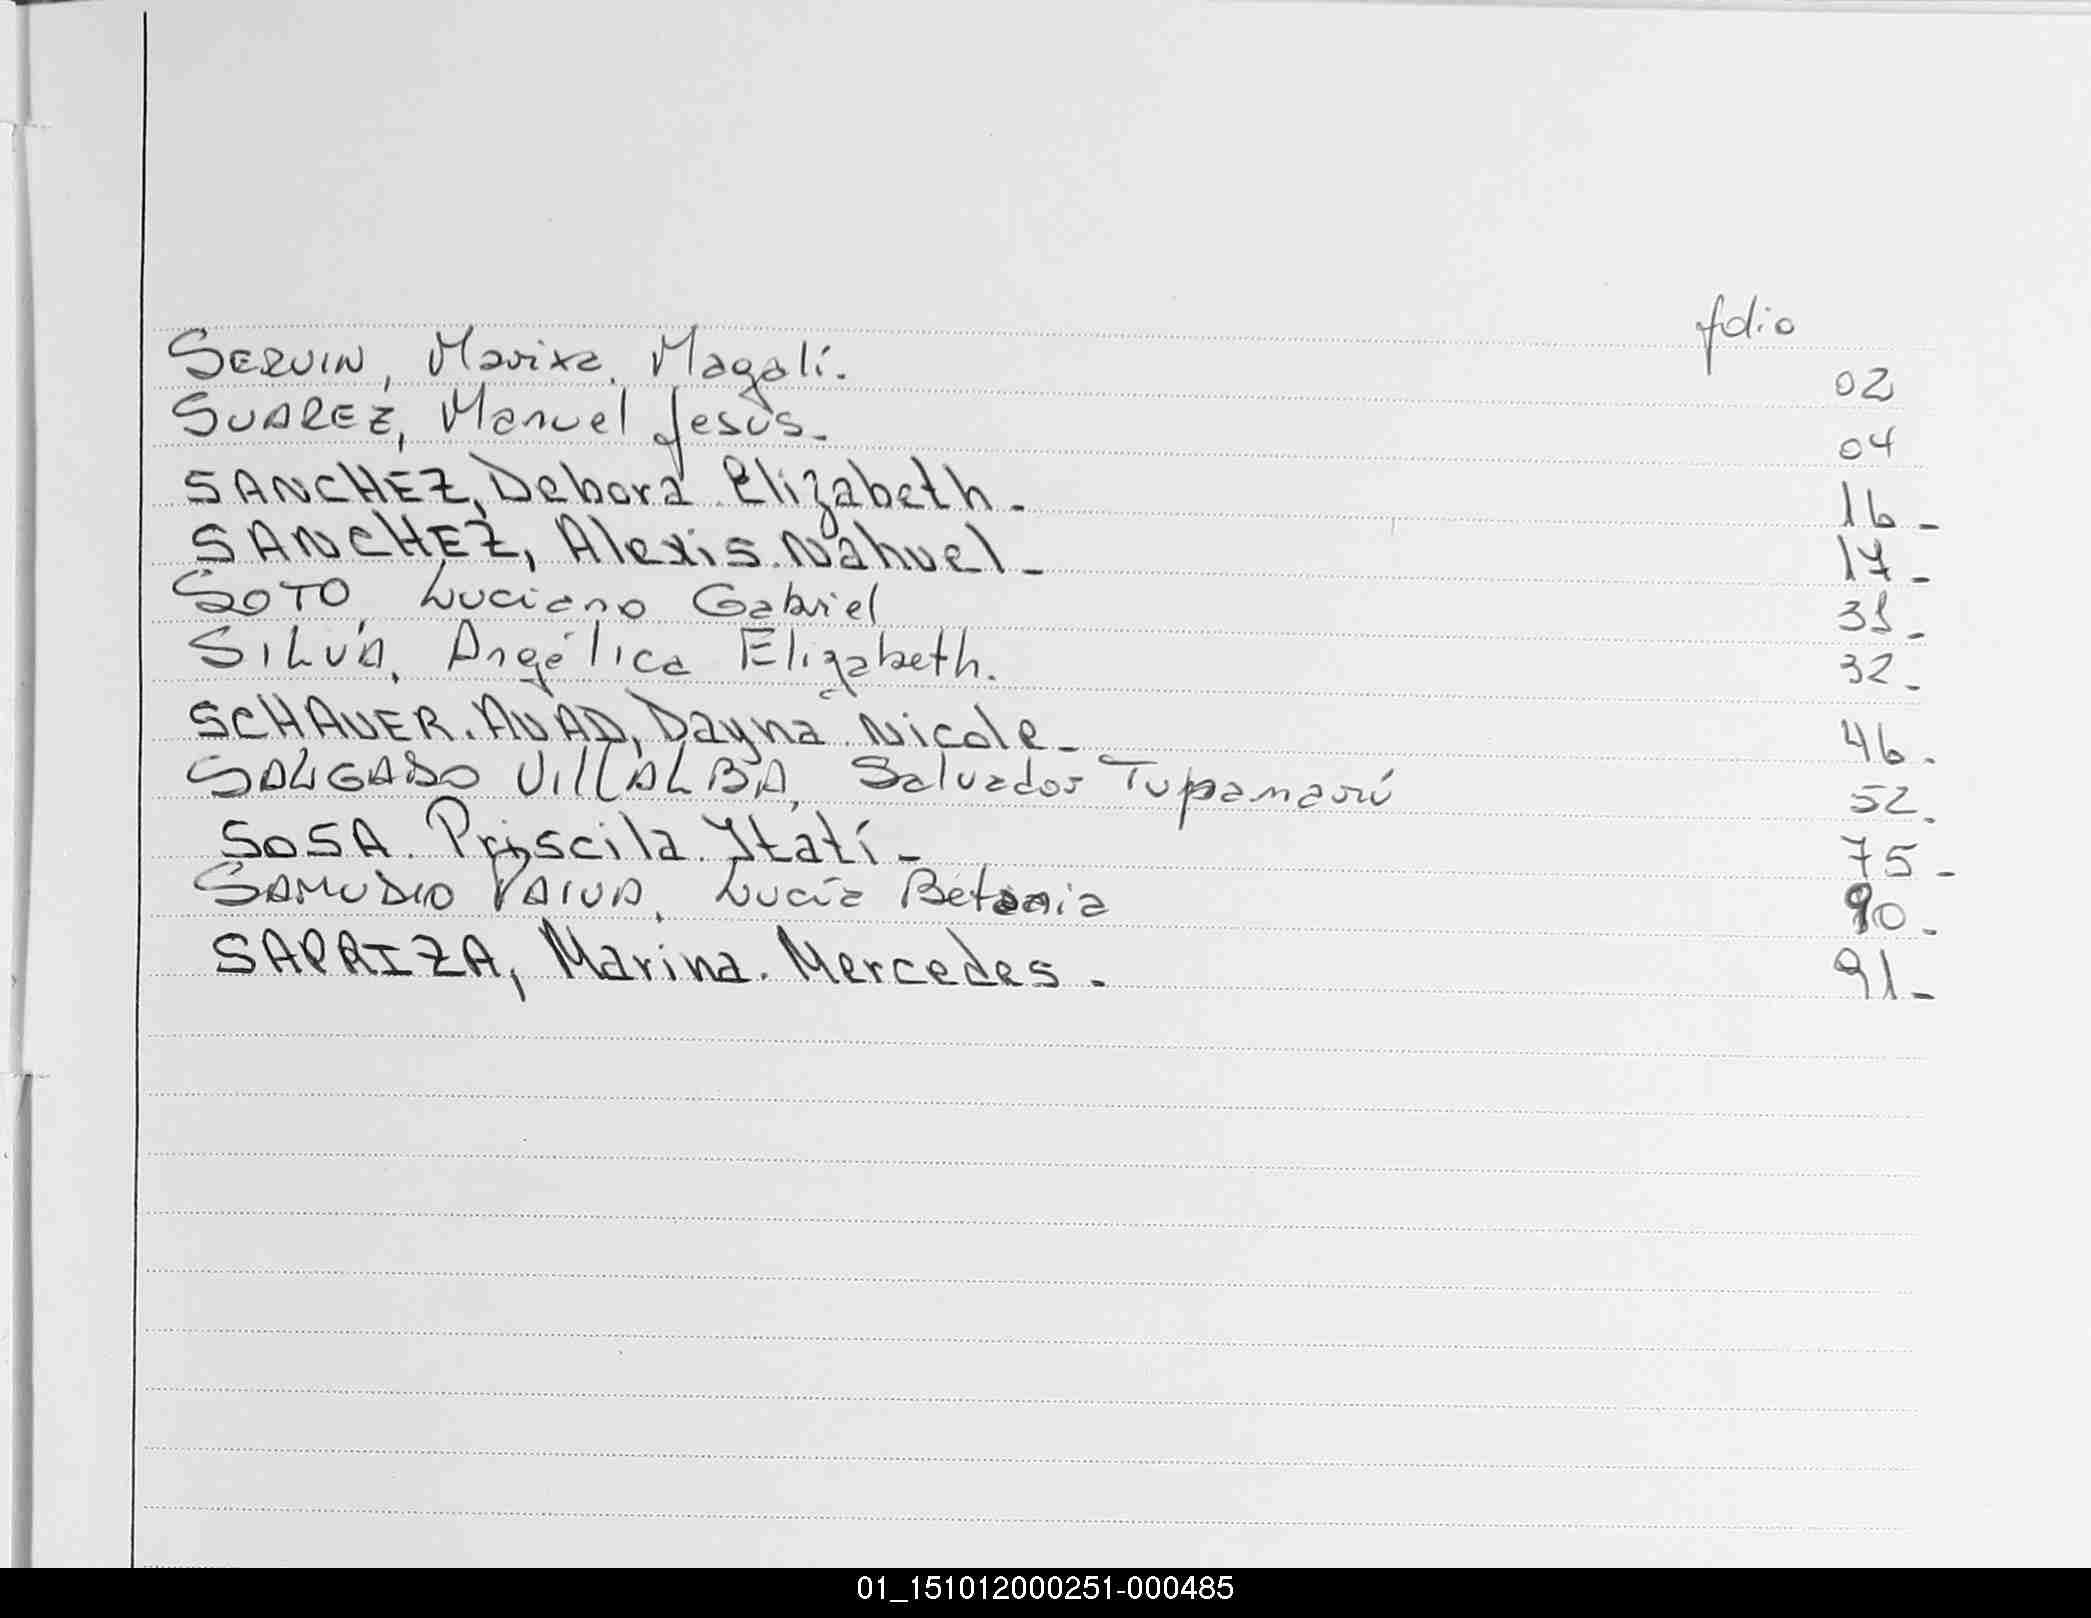 folio
SERVIN, Marixa Magalí. 02
SUAREZ, Manuel Jesús. 04
SANCHEZ, Debora Elizabeth. 16
SANCHEZ, Alexis Nahuel. 17
SOTO, Luciano Gabriel 31
SILVA, Angélica Elizabeth. 32
SCHAUER AUAD, Dayna Nicole. 46
SALGADO VILLALBA, Salvador Tupamarú 52
SOSA Priscila Itatí. 75
SAMUDIO PAIVA, Lucía Betania 90
SAPRIZA, Marina Mercedes. 91
01_151012000251-000485